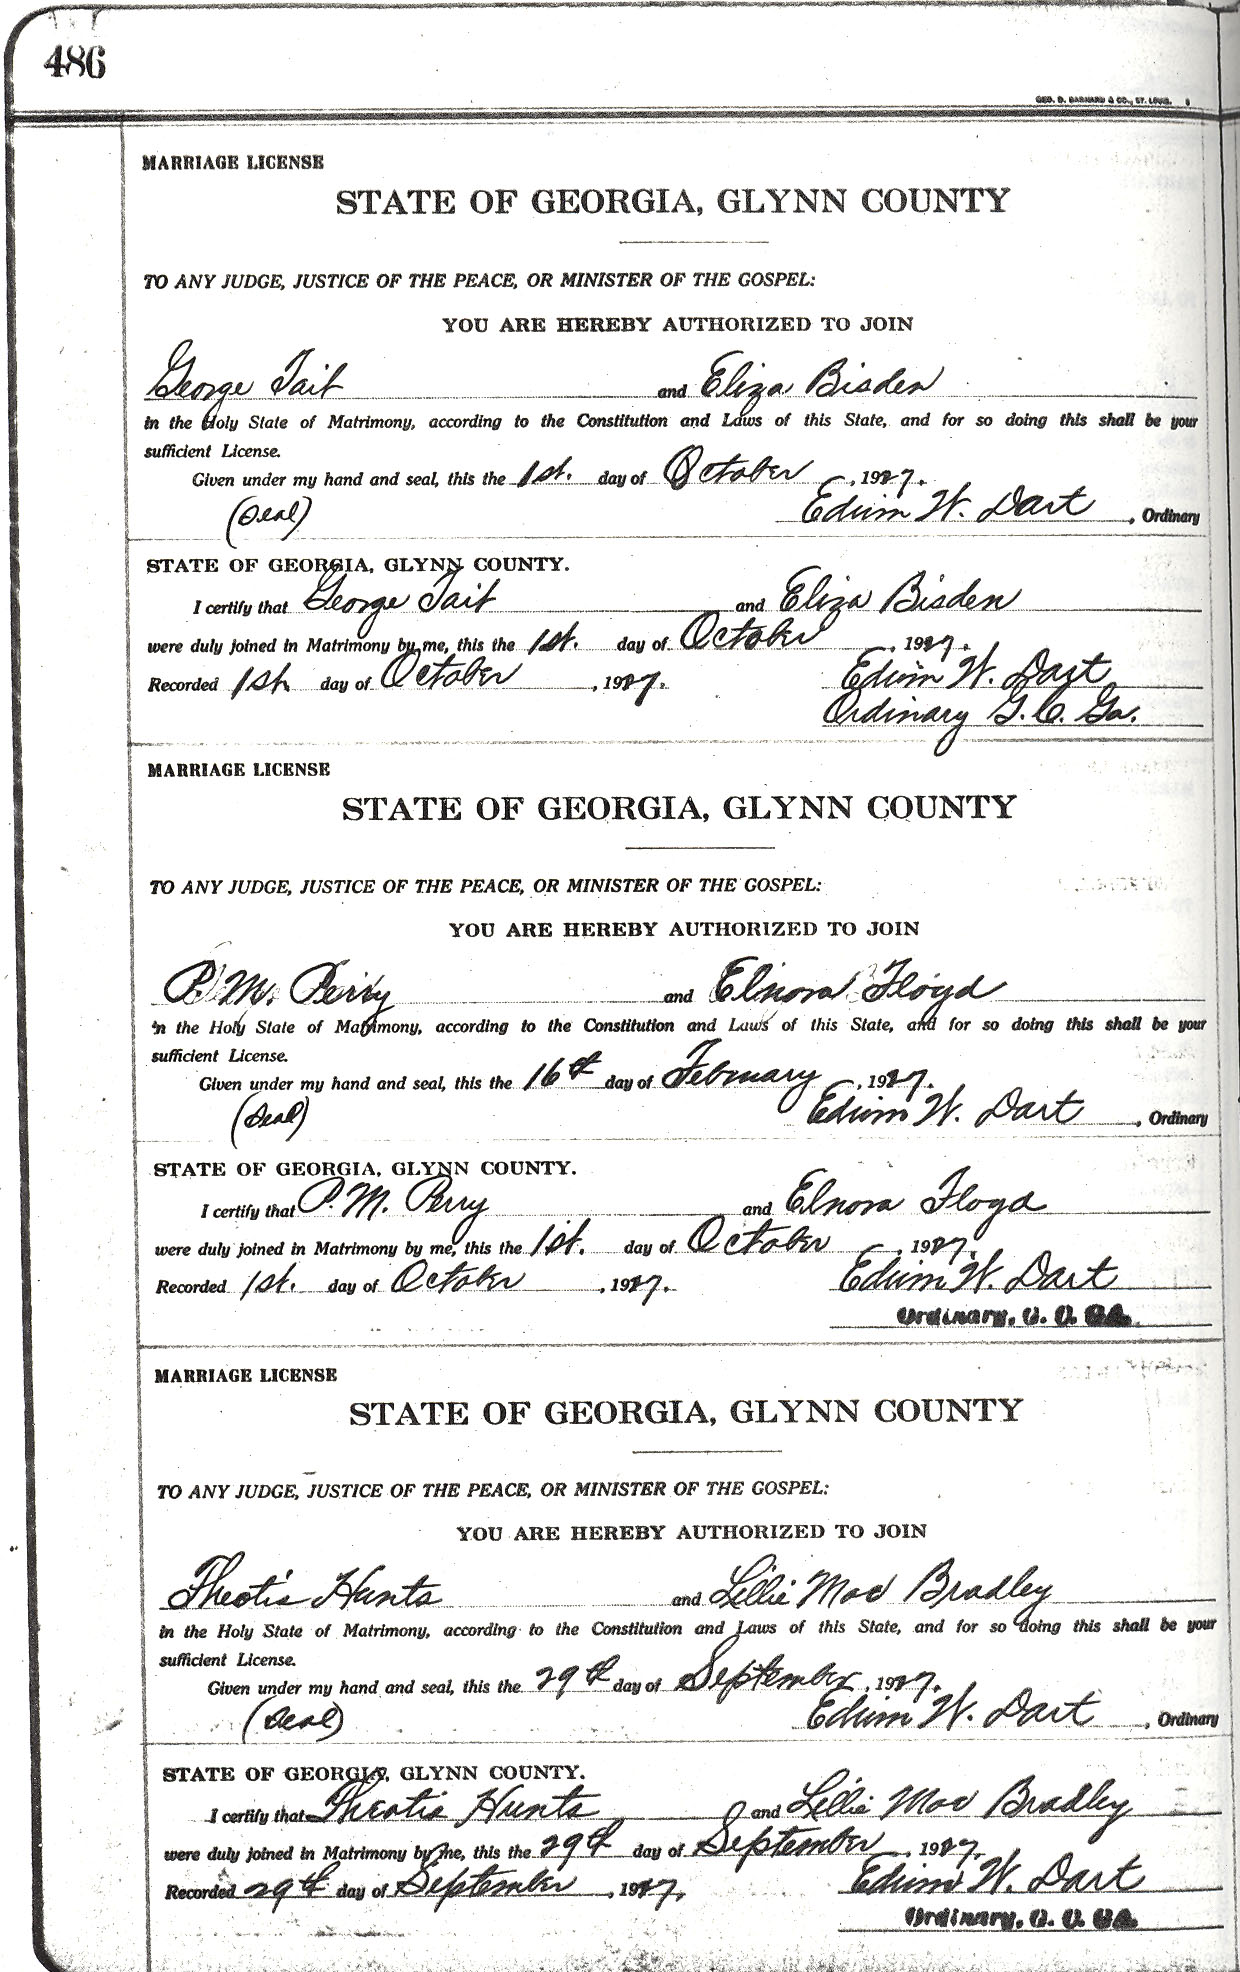 486
GEO. D. BARNARD & CO., ST. LOUIS.
MARRIAGE LICENSE
STATE OF GEORGIA, GLYNN COUNTY
TO ANY JUDGE, JUSTICE OF THE PEACE, OR MINISTER OF THE GOSPEL:
YOU ARE HEREBY AUTHORIZED TO JOIN
George Tait and Eliza Bisden
in the Holy State of Matrimony, according to the Constitution and Laws of this State, and for so doing this shall be your
sufficient License.
Given under my hand and seal, this the 1st. day of October, 1927.
(Seal) Edwin W. Dart, Ordinary
STATE OF GEORGIA, GLYNN COUNTY.
I certify that George Tait and Eliza Bisden
were duly joined in Matrimony by me, this the 1st. day of October, 1927.
Recorded 1st. day of October, 1927. Edwin W. Dart
Ordinary G. C. Ga.
MARRIAGE LICENSE
STATE OF GEORGIA, GLYNN COUNTY
TO ANY JUDGE, JUSTICE OF THE PEACE, OR MINISTER OF THE GOSPEL:
YOU ARE HEREBY AUTHORIZED TO JOIN
P. M. Perry and Elnora Floyd
in the Holy State of Matrimony, according to the Constitution and Laws of this State, and for so doing this shall be your
sufficient License.
Given under my hand and seal, this the 16th day of February, 1927.
(Seal) Edwin W. Dart, Ordinary
STATE OF GEORGIA, GLYNN COUNTY.
I certify that P. M. Perry and Elnora Floyd
were duly joined in Matrimony by me, this the 1st. day of October, 1927.
Recorded 1st. day of October, 1927. Edwin W. Dart
Ordinary, G. C. GA.
MARRIAGE LICENSE
STATE OF GEORGIA, GLYNN COUNTY
TO ANY JUDGE, JUSTICE OF THE PEACE, OR MINISTER OF THE GOSPEL:
YOU ARE HEREBY AUTHORIZED TO JOIN
Theotis Hunts and Lillie Mae Bradley
in the Holy State of Matrimony, according to the Constitution and Laws of this State, and for so doing this shall be your
sufficient License.
Given under my hand and seal, this the 29th day of September, 1927.
(Seal) Edwin W. Dart, Ordinary
STATE OF GEORGIA, GLYNN COUNTY.
I certify that Theotis Hunts and Lillie Mae Bradley
were duly joined in Matrimony by me, this the 29th day of September, 1927.
Recorded 29th day of September, 1927. Edwin W. Dart
Ordinary, G. C. GA.